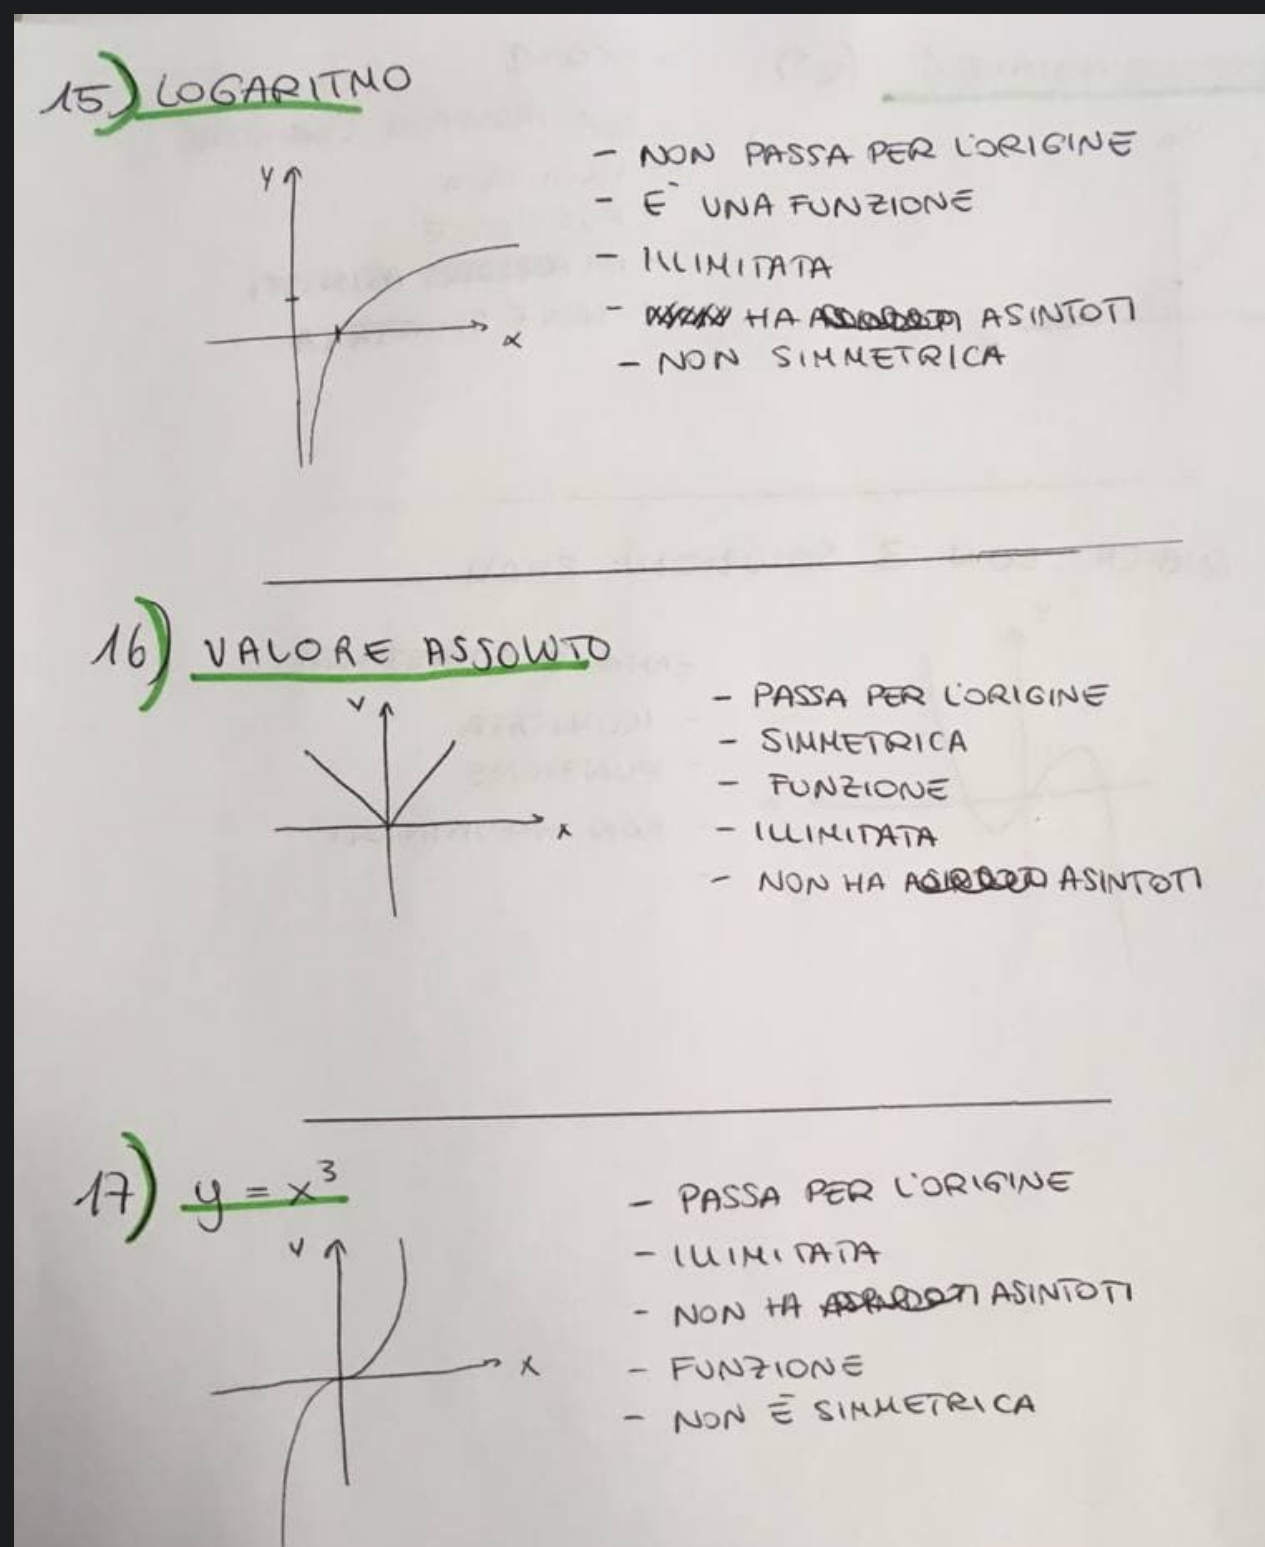 15) LOGARITMO
y
x
- NON PASSA PER L'ORIGINE
- E` UNA FUNZIONE
- ILLIMITATA
- HA ASINTOTI
- NON SIMMETRICA
16) VALORE ASSOLUTO
y
x
- PASSA PER L'ORIGINE
- SIMMETRICA
- FUNZIONE
- ILLIMITATA
- NON HA ASINTOTI
17) y = x³
y
x
- PASSA PER L'ORIGINE
- ILLIMITATA
- NON HA ASINTOTI
- FUNZIONE
- NON È SIMMETRICA